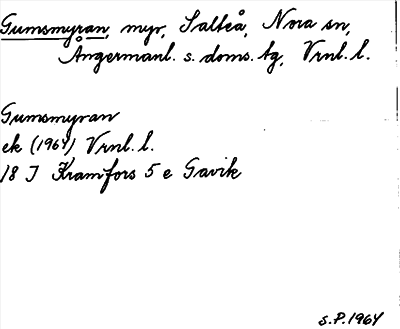 Gumsmyran, myr, Salteå, Nora sn,
Ångermanl. s. doms. tg, Vrnl. l.
Gumsmyran
ek (1964) Vrnl. l.
18 J Kramfors 5 e Gavik
S.P. 1964